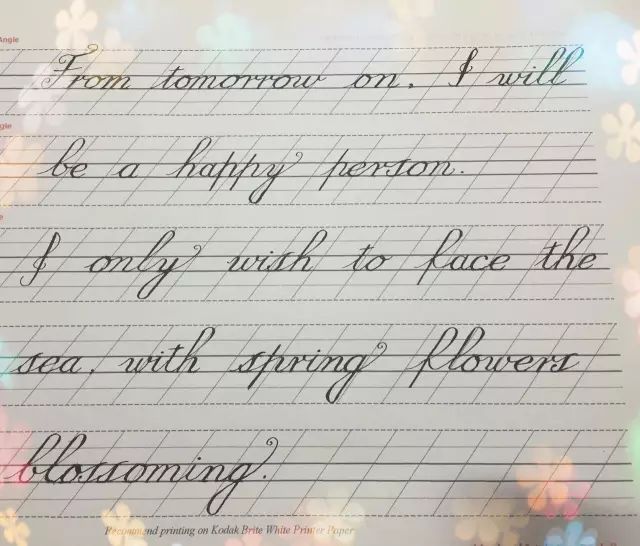 Angle
From tomorrow on, I will
be a happy person.
I only wish to face the
sea, with spring flowers
blossoming.
Recommend printing on Kodak Brite White Printer Paper